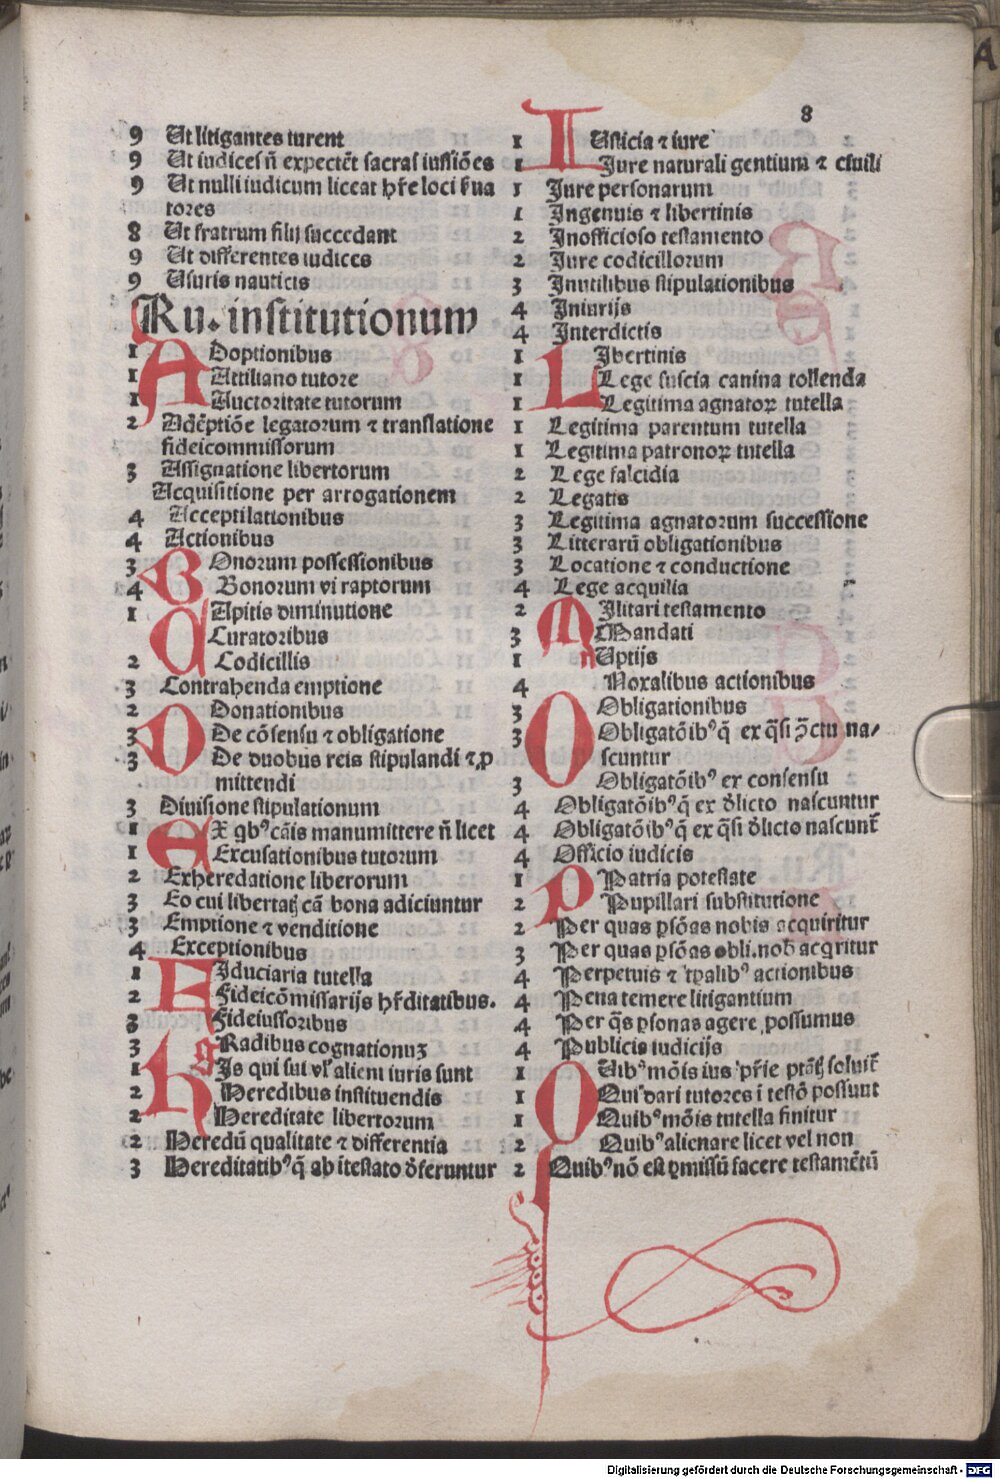 8
9 Ut litigantes iurent
9 Ut iudices n̄ expectēt sacras iussiões
9 Ut nulli iudicum liceat hr̄e loci ẜua
tores
8 Ut fratrum filij succedant
9 Ut differentes iudices
9 Usuris nauticis
Ru. institutionum
1 Adoptionibus
1 Attiliano tutore
1 Auctoritate tutorum
2 Adēptiōe legatorum ⁊ translatione
fideicommissorum
3 Assignatione libertorum
Acquisitione per arrogationem
4 Acceptilationibus
4 Actionibus
3 BOnorum possessionibus
4 Bonorum vi raptorum
1 CApitis diminutione
Curatoribus
2 Codicillis
3 Contrahenda emptione
2 DOnationibus
3 De cōsensu ⁊ obligatione
3 De duobus reis stipulandi ⁊ ꝓ
mittendi
3 Divisione stipulationum
1 EX qbꝰ cāis manumittere n̄ licet
1 Excusationibus tutorum
2 Exheredatione liberorum
3 Eo cui libertatꝭ cā bona adiciuntur
3 Emptione ⁊ venditione
4 Exceptionibus
1 FIduciaria tutella
2 Fideicōmissarijs hr̄ditatibus.
3 Fideiussoribus
3 gRadibus cognationuꝫ
1 hIs qui sui vl̓ alieni iuris sunt
2 Heredibus instituendis
2 Hereditate libertorum
2 Heredū qualitate ⁊ differentia
3 Hereditatibꝰ q̄ ab ītestato d̓feruntur
1 IUsticia ⁊ iure
1 Iure naturali gentium ⁊ ciuili
1 Iure personarum
1 Ingenuis ⁊ libertinis
2 Inofficioso testamento
2 Iure codicillorum
3 Inutilibus stipulationibus
4 Iniurijs
4 Interdictis
1 LIbertinis
1 Lege fuscia canina tollenda
1 Legitima agnatoꝝ tutella
1 Legitima parentum tutella
1 Legitima patronoꝝ tutella
2 Lege falcidia
2 Legatis
3 Legitima agnatorum successione
3 Litterarū obligationibus
3 Locatione ⁊ conductione
4 Lege acquilia
2 MIlitari testamento
3 Mandati
1 nUptijs
4 Noxalibus actionibus
3 OBligationibus
3 Obligatōibꝰ q̄ ex q̄si ꝯ̄ctu na/
scuntur
3 Obligatōibꝰ ex consensu
4 Obligatōibꝰ q̄ ex d̓licto nascuntur
4 Obligatōibꝰ q̄ ex q̄si d̓licto nascunt̄
4 Officio iudicis
1 PAtria potestate
2 Pupillari substitutione
2 Per quas ꝑsōas nobis acquiritur
3 Per quas ꝑsōas obli. nob̄ acqritur
4 Perpetuis ⁊ tꝑalibꝰ actionibus
4 Pena temere litigantium
4 Per q̄s ꝑsonas agere possumus
4 Publicis iudicijs
1 QUibꝰ mōis ius pr̄ie ptātꝭ soluit̄
1 Qui dari tutores ī testō possunt
1 Quibꝰ mōis tutella finitur
2 Quibꝰ alienare licet vel non
2 Quibꝰ nō est ꝑmissū facere testamētū
Digitalisierung gefördert durch die Deutsche Forschungsgemeinschaft - DFG